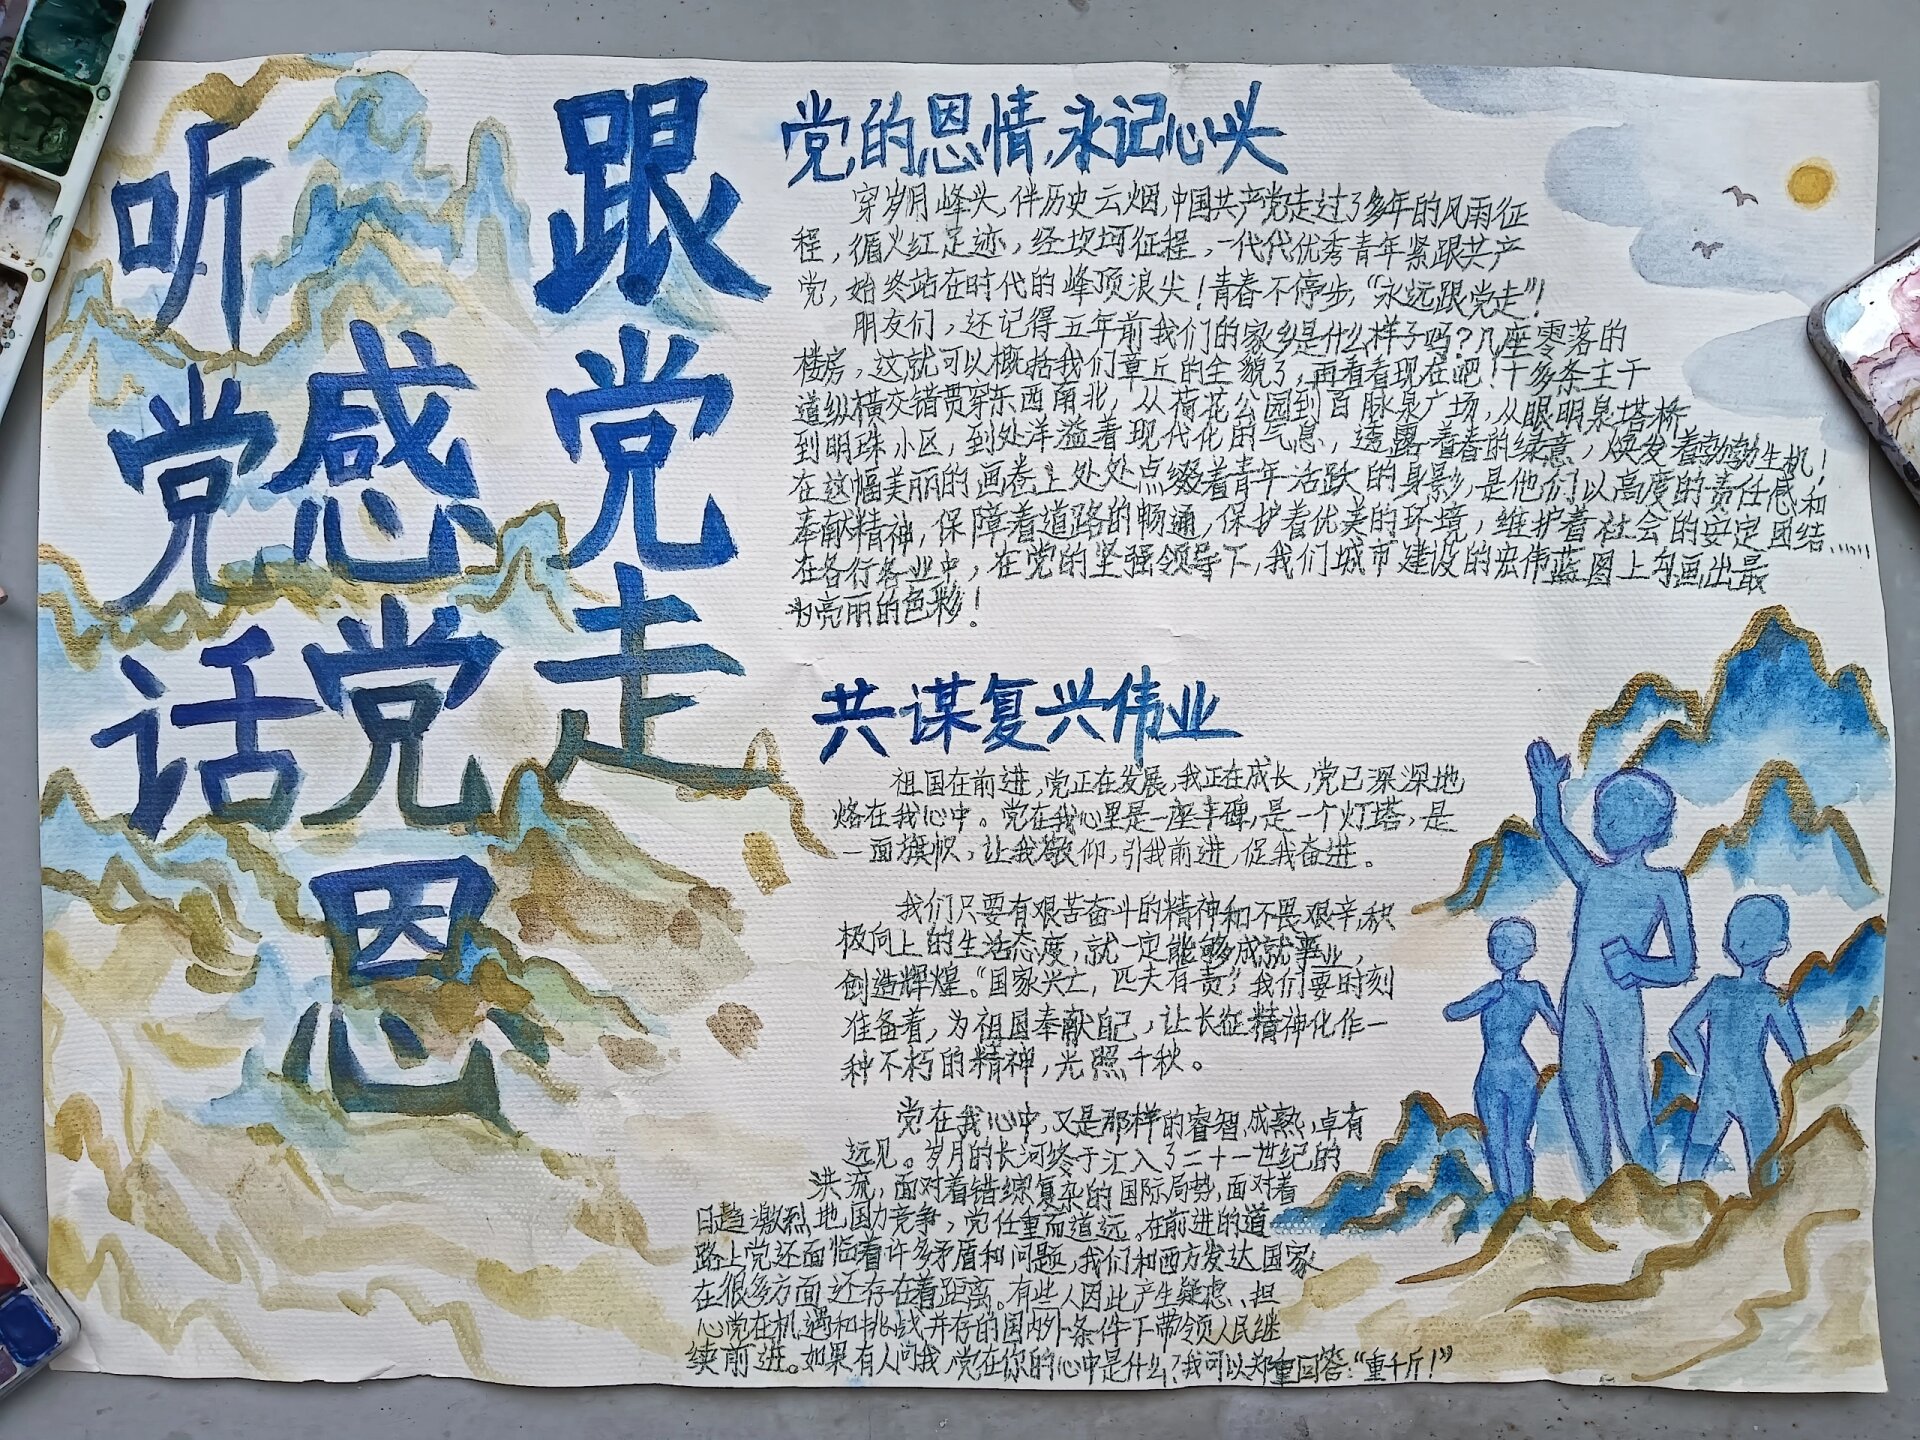 听党话
感党恩
跟党走
党的恩情,永记心头
穿岁月峰头,伴历史云烟,中国共产党走过了多年的风雨征
程,循火红足迹,经坎坷征程,一代代优秀青年紧跟共产
党,始终站在时代的峰顶浪尖!青春不停步,“永远跟党走”!
朋友们,还记得五年前我们的家乡是什么样子吗?几座零落的
楼房,这就可以概括我们章丘的全貌了,再看看现在吧!十多条主干
道纵横交错贯穿东西南北,从荷花公园到百脉泉广场,从眼明泉塔桥
到明珠小区,到处洋溢着现代化的气息,透露着春的绿意,焕发着勃勃生机!
在这幅美丽的画卷上处处点缀着青年活跃的身影,是他们以高度的责任感和
奉献精神,保障着道路的畅通,保护着优美的环境,维护着社会的安定团结……
在各行各业中,在党的坚强领导下,我们城市建设的宏伟蓝图上勾画出最
为亮丽的色彩!
共谋复兴伟业
祖国在前进,党正在发展,我正在成长,党已深深地
烙在我心中。党在我心里是一座丰碑,是一个灯塔,是
一面旗帜,让我敬仰,引我前进,促我奋进。
我们只要有艰苦奋斗的精神和不畏艰辛,积
极向上的生活态度,就一定能够成就事业,
创造辉煌。“国家兴亡,匹夫有责”,我们要时刻
准备着,为祖国奉献自己,让长征精神化作一
种不朽的精神,光照千秋。
党在我心中,又是那样的睿智,成熟,卓有
远见。岁月的长河终于汇入了二十一世纪的
洪流,面对着错综复杂的国际局势,面对着
日趋激烈地国力竞争,党任重而道远。在前进的道
路上党还面临着许多矛盾和问题,我们和西方发达国家
在很多方面还存在着距离。有些人因此产生疑虑、担
心党在机遇和挑战并存的国内外条件下带领人民继
续前进。如果有人问我,党在你的心中是什么?我可以郑重回答:“重千斤!”